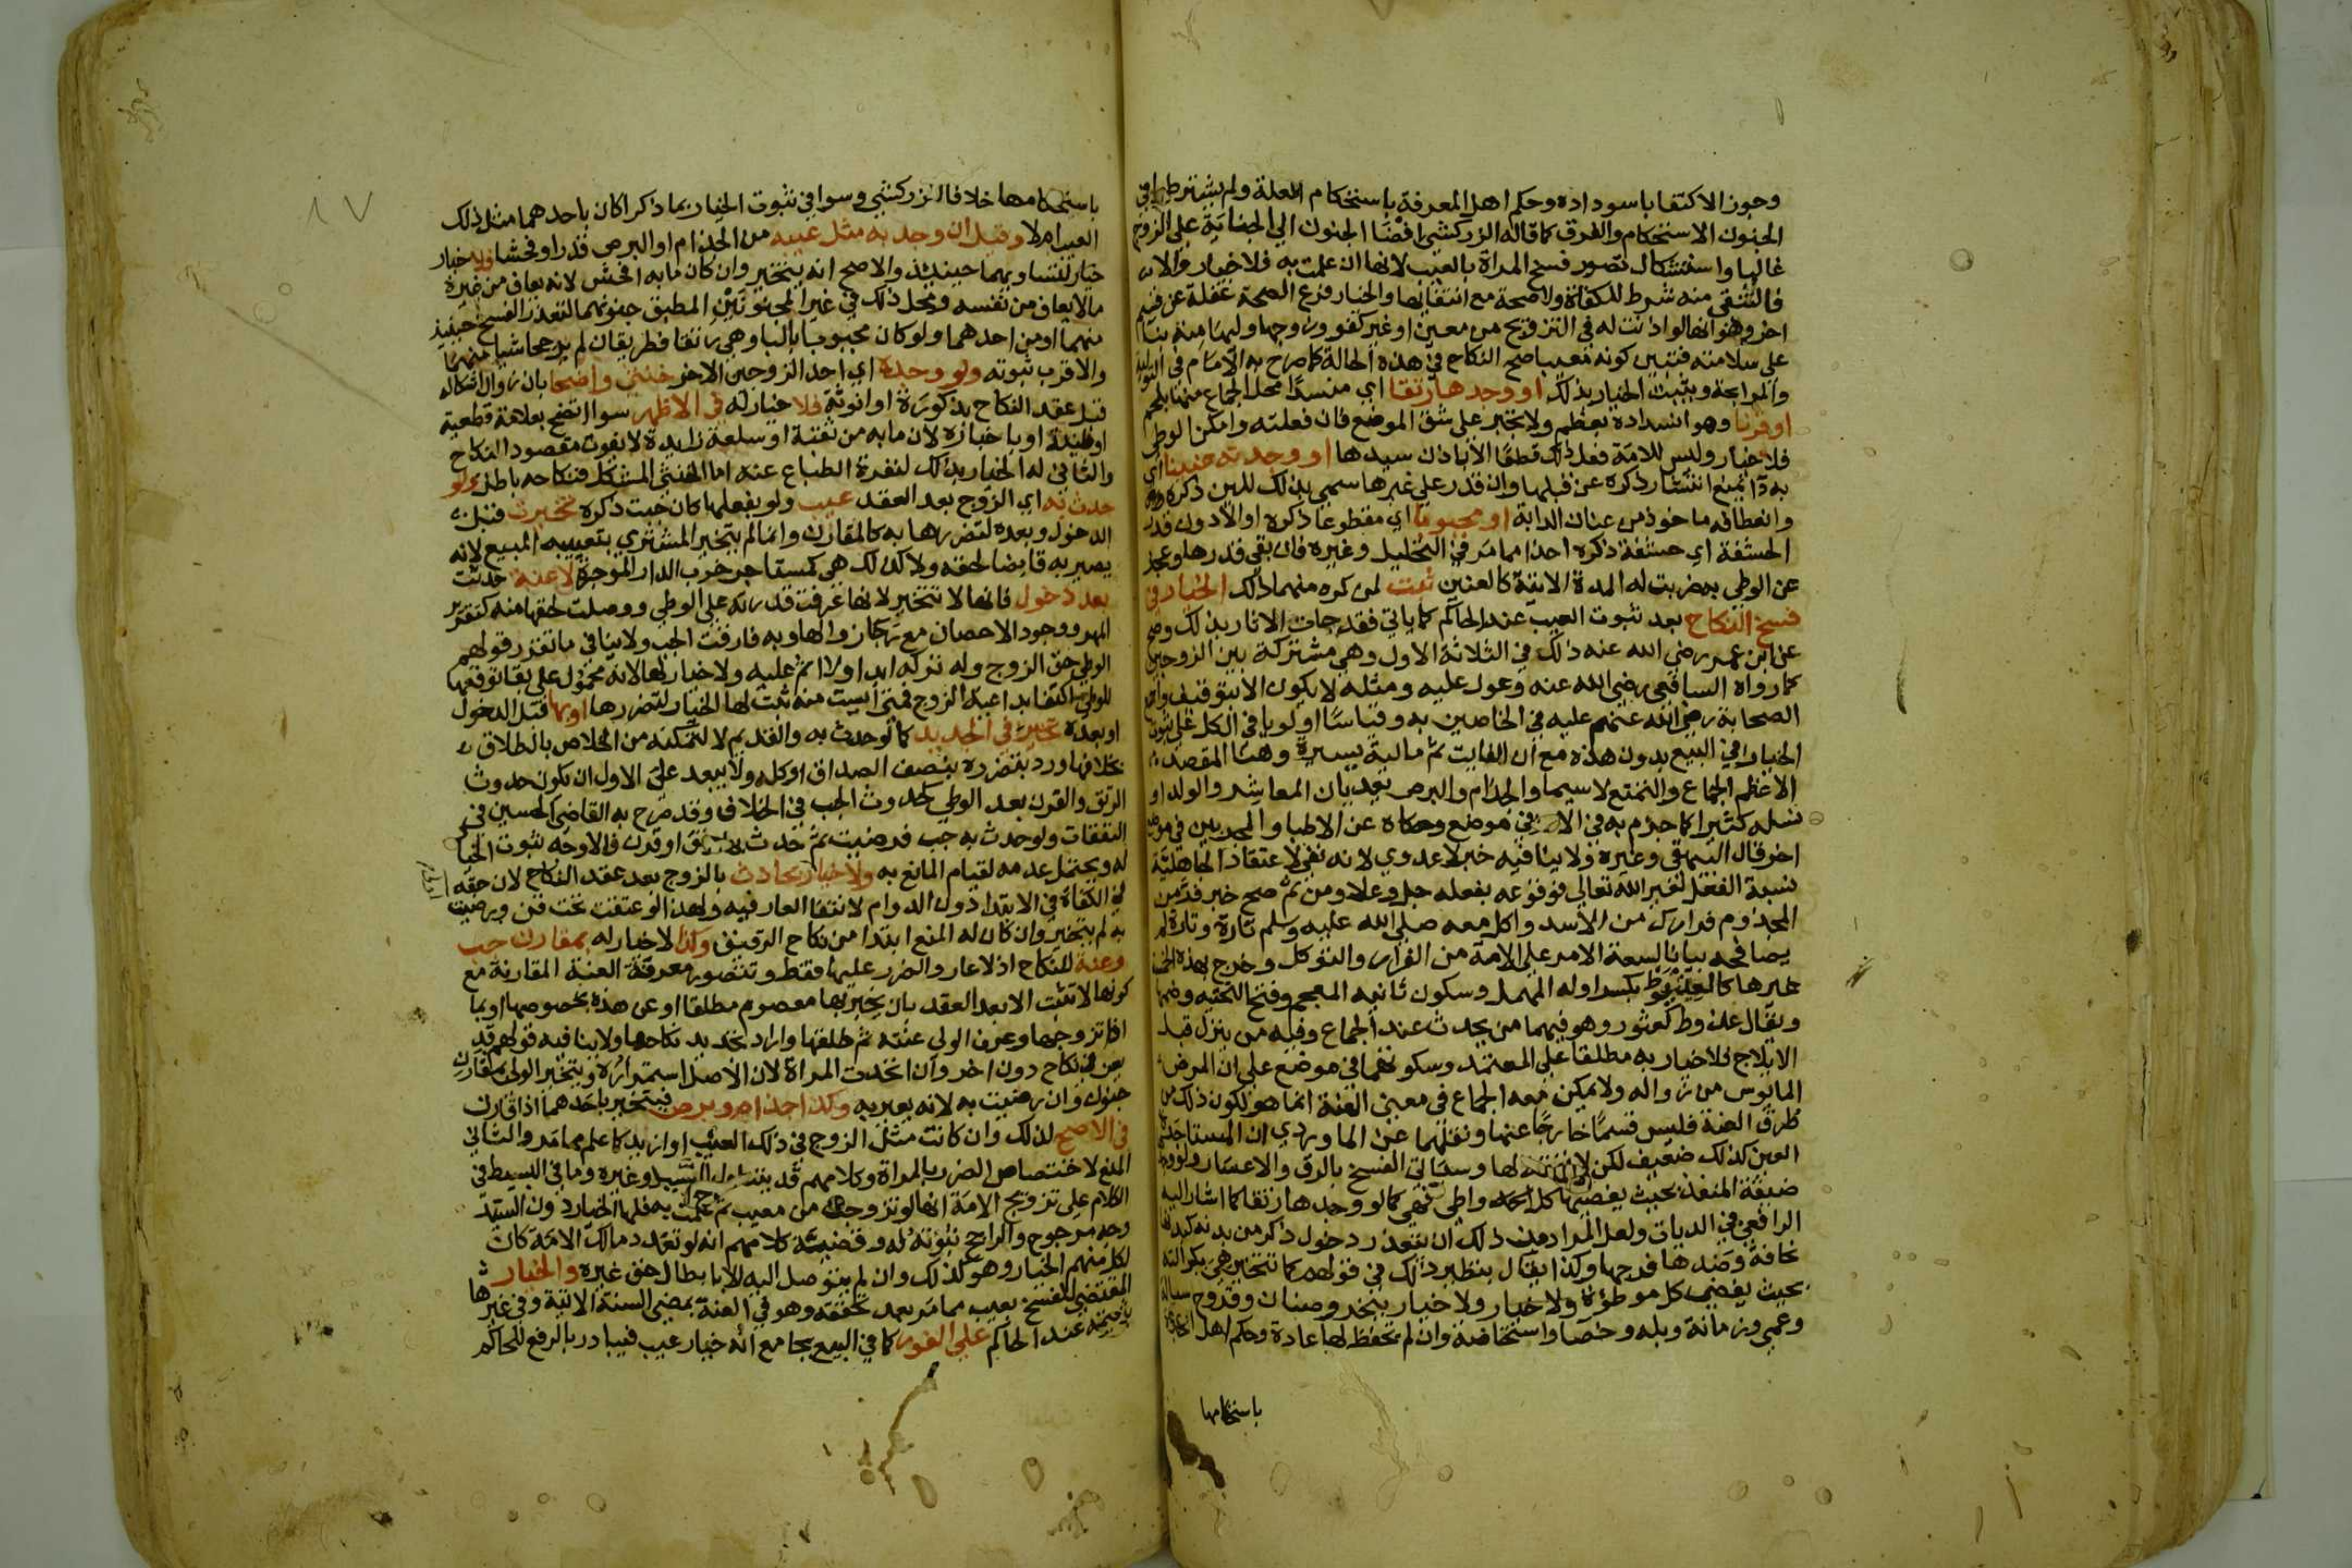 وجوز الاكتفا باسوداده وحكم اهل المعرفة باستحكام العلة ولم يشترط في
الجنون الاستحكام والفرق كما قاله الزركشي افضا الجنون الي الجناية علي الزوج
غالبا واستشكال تصور فسخ المراة بالعيب لانها ان علمت به فلا خيار والا
فالتنقي منه شرط للكفاة ولا صحة مع انتفايها والخيار فرع الصحة غفلة عن قسم
اخر وهو انها لو اذنت له في التزويج من معين او غير كفو وزوجها وليها منه بنا
علي سلامته فتبين كونه معيبا صح النكاح في هذه الحالة كما صرح به الامام في
والمرابحة ويثبت الخيار بذلك او وجدها رتقا اي منسدا محل الجماع منها بلحم
او قرنا وهو انسداده بعظم ولا تجبر علي شق الموضع فان فعلته وامكن الوطي
فلا خيار وليس للامة فعل ذلك قطعا الا باذن سيدها او وجدته عنينا اي
به دا يمنع انتشار ذكره عن قبلها وان قدر علي غيرها سمي بذلك للين ذكره
وانعطافه ماخوذ من عنان الدابة او مجبوبا اي مقطوعا ذكره او الا دون قدر
الحشفة اي حشفة ذكره اخذا مما مر في التحليل وغيره فان بقي قدرها وعجز
عن الوطي به ضربت له المدة الاتية كالعنين ثبت لمن كره منهما ذلك الخيار في
فسخ النكاح بعد ثبوت العيب عند الحاكم كما ياتي فقد جات الاثار بذلك وصح
عن ابن عمر رضي الله عنه ذلك في الثلاثة الاول وهي مشتركة بين الزوجين
كما رواه الشافعي رضي الله عنه وعول عليه ومثله لا يكون الا بتوقيف
الصحابة رضي الله عنهم عليه في الخاصين به وقياسا اولويا في الكل علي ثبوت
الخيار في البيع بدون هذه مع ان الفايت ثم مالية يسيرة وهنا المقصد
الاعظم الجماع والتمتع لا سيما والجذام والبرص يعديان المعاشر والولد او
نسله كثيرا كما جزم به في الام في موضع وحكاه عن الاطبا والمجربين في موضع
اخر قال البيهقي وغيره ولا ينافيه خبر لا عدوي لانه نفي لاعتقاد الجاهلية
نسبة الفعل لغير الله تعالي فوقوعه بفعله جل وعلا ومن ثم صح خبر فر من
المجذوم فرارك من الاسد واكل معه صلي الله عليه وسلم تارة وتارة لم
يصافحه بيانا لسعة الامر علي الامة من الفرار والتوكل وخرج بهذه الخمسة
غيرها كالعذيوط بكسر اوله المهمل وسكون ثانيه المعجم وفتح التحتيه وضمها
ويقال عذوط كعثور وهو فيهما من يحدث عند الجماع وفيه من ينزل قبل
الايلاج فلا خيار به مطلقا علي المعتمد وسكوتهما في موضع علي ان المرض
المايوس من زواله ولا يمكن معه الجماع في معني العنة انما هو لكون ذلك من
طرق العنة فليس قسما خارجا عنها ونقلهما عن الماوردي ان المستاجرة
العين كذلك ضعيف لكن لا نفقة لها وسياتي الفسخ بالرق والاعسار ولو وجدها
ضيقة المنفذ بحيث يفضيها كل واطي فهي كما لو وجدها رتقا كما اشار اليه
الرافعي في الديات ولعل المراد من ذلك ان يتعذر دخول ذكر من بدنه كبدنها
نحافة وضدها فرجها وكذا يقال بنظير ذلك في قولهم كما تتخير هي بكبر الته
بحيث يفضي كل موطؤة ولا خيار ولا خيار ببخر وصنان وقروح سيالة
وعمي وزمانة وبله وخصا واستحاضة وان لم تحفظ لها عادة وحكم اهل الخبرة
باستحكامها
١٧
باستحكامها خلافا للزركشي وسوا في ثبوت الخيار بما ذكر اكان باحدهما مثل ذلك
العيب ام لا وقيل ان وجد به مثل عيبه من الجذام او البرص قدرا وفحشا فلا خيار
خيار لتساويهما حينيذ والاصح انه يتخير وان كان ما به افحش لانه يعاف من غيره
ما لا يعاف من نفسه ومحل ذلك في غير المجنونين المطبق جنونهما لتعذر الفسخ حينيذ
منهما او من احدهما ولو كان مجبوبا بالبا وهي رتقا فطريقان لم يرجحا شيا منهما
والاقرب ثبوته ولو وجده اي احد الزوجين الاخر خنثي واضحا بان زوال اشكاله
قبل عقد النكاح بذكورة او انوثة فلا خيار له في الاظهر سوا اتضح بعلامة قطعية
او ظنية او باخباره لان ما به من ثقبة او سلعة زايدة لا يفوت مقصود النكاح
والثاني له الخيار بذلك لنفرة الطباع عنه اما الخنثي المشكل فنكاحه باطل ولو
حدث به اي الزوج بعد العقد عيب ولو بفعلها كان جبت ذكره تخيرت قبل
الدخول وبعده لتضررها به كالمقارن وانما لم يتخير المشتري بتعييبه المبيع لانه
يصير به قابضا لحقه ولا كذلك هي كمستاجر خرب الدار الموجرة لا عنة حدثت
بعد دخول فانها لا تتخير لانها عرفت قدرته علي الوطي ووصلت لحقها منه كتقرير
المهر ووجود الاحصان مع رجا زوالها وبه فارقت الجب ولا ينافي ما تقرر قولهم
الوطي حق الزوج وله تركه ابدا ولا اثم عليه ولا خيار لها لانه محمول علي بقا توقعها
للوطي اكتفا بداعية الزوج فمتي ايست منه ثبت لها الخيار لتضررها او بها قبل الدخول
او بعده تخير في الجديد كما لو حدث به والقديم لا لتمكنه من الخلاص بالطلاق
بخلافها ورد بتضرره بنصف الصداق او كله ولا يبعد علي الاول ان يكون حدوث
الرتق والقرن بعد الوطي كحدوث الجب في الخلاف وقد صرح به القاضي الحسين في
النفقات ولو حدث به جب فرضيت ثم حدث بها رتق او قرن فالاوجه ثبوت الخيار
له ويحتمل عدمه لقيام المانع به ولا خيار بحادث بالزوج بعد عقد النكاح لان حقه
في الكفاة في الابتدا دون الدوام لانتفا العار فيه ولهذا لو عتقت تحت قن ورضيت
به لم يتخير وان كان له المنع ابتدا من نكاح الرقيق وكذا لا خيار له بمقارن جب
وعنة للنكاح اذ لا عار والضرر عليها فقط وتتصور معرفة العنة المقارنة مع
كونها لا تثبت الا بعد العقد بان يخبر بها معصوم مطلقا او عن هذه بخصوصها او بما
اذا تزوجها وعرف الولي عنته ثم طلقها واراد تجديد نكاحها ولا ينافيه قولهم قد
يعن في نكاح دون اخر وان اتحدت المراة لان الاصل استمراره ويتخير الولي بمقارن
جنون وان رضيت به لانه يعير به وكذا جذام وبرص فيتخير باحدهما اذا قارن
في الاصح لذلك وان كانت مثل الزوج في ذلك العيب او ازيد كما علم مما مر والثاني
المنع لاختصاص الضرر بالمراة وكلامهم قد يتناول السيد وغيره وما في البسيط في
الكلام علي تزويج الامة انها لو تزوجت من معيب ثم علمت به فلها الخيار دون السيد
وجه مرجوح والراجح ثبوته له وقضية كلامهم انه لو تعدد مالك الامة كان
لكل منهم الخيار وهو كذلك وان لم يتوصل اليه الا بابطال حق غيره والخيار
المقتضي للفسخ بعيب مما مر بعد تحققه وهو في العنة بمضي السنة الاتية وفي غيرها
بثبوته عند الحاكم علي الفور كما في البيع بجامع انه خيار عيب فيبادر بالرفع للحاكم